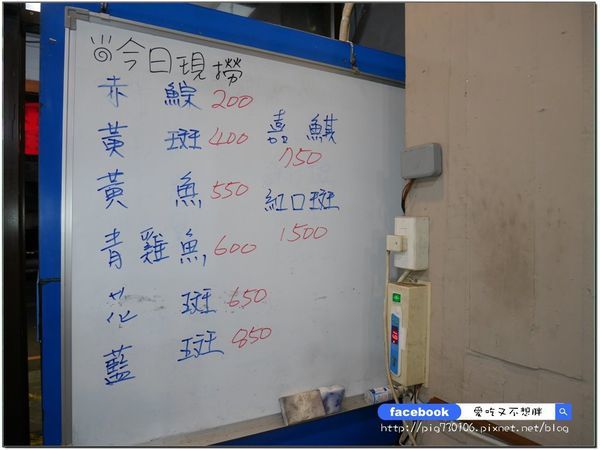 今日現撈
赤鯮 200
黃斑 400
黃魚 550
青雞魚 600
花斑 650
藍斑 850
嘉鱲
750
紅口斑
1500
facebook 愛吃又不想胖
http://pig730106.pixnet.net/blog